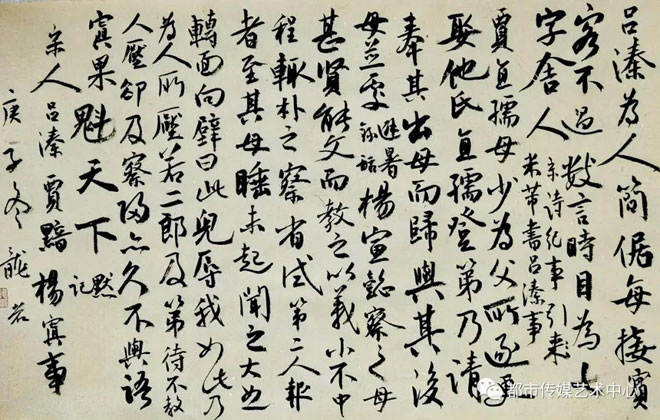 吕溱為人簡倨每接賓
客不過數言時目為七
字舍人
宋詩紀事引来
米芾書吕溱事
賈直孺母少為父所逐更
娶他氏直孺登第乃請
奉其出母而歸與其後
母並處 避暑錄話 楊宣懿察之母
甚賢能文而教之以義小不中
程輒朴之察省试第二人報
者至其母睡未起聞之大怒
轉面向壁曰此兒辱我如此乃
為人所壓若二郎及第待不教
人壓却及察歸亦久不與語
寘果魁天下 默記
宋人吕溱賈黯楊寘事
庚子冬龍
都市传媒艺术中心